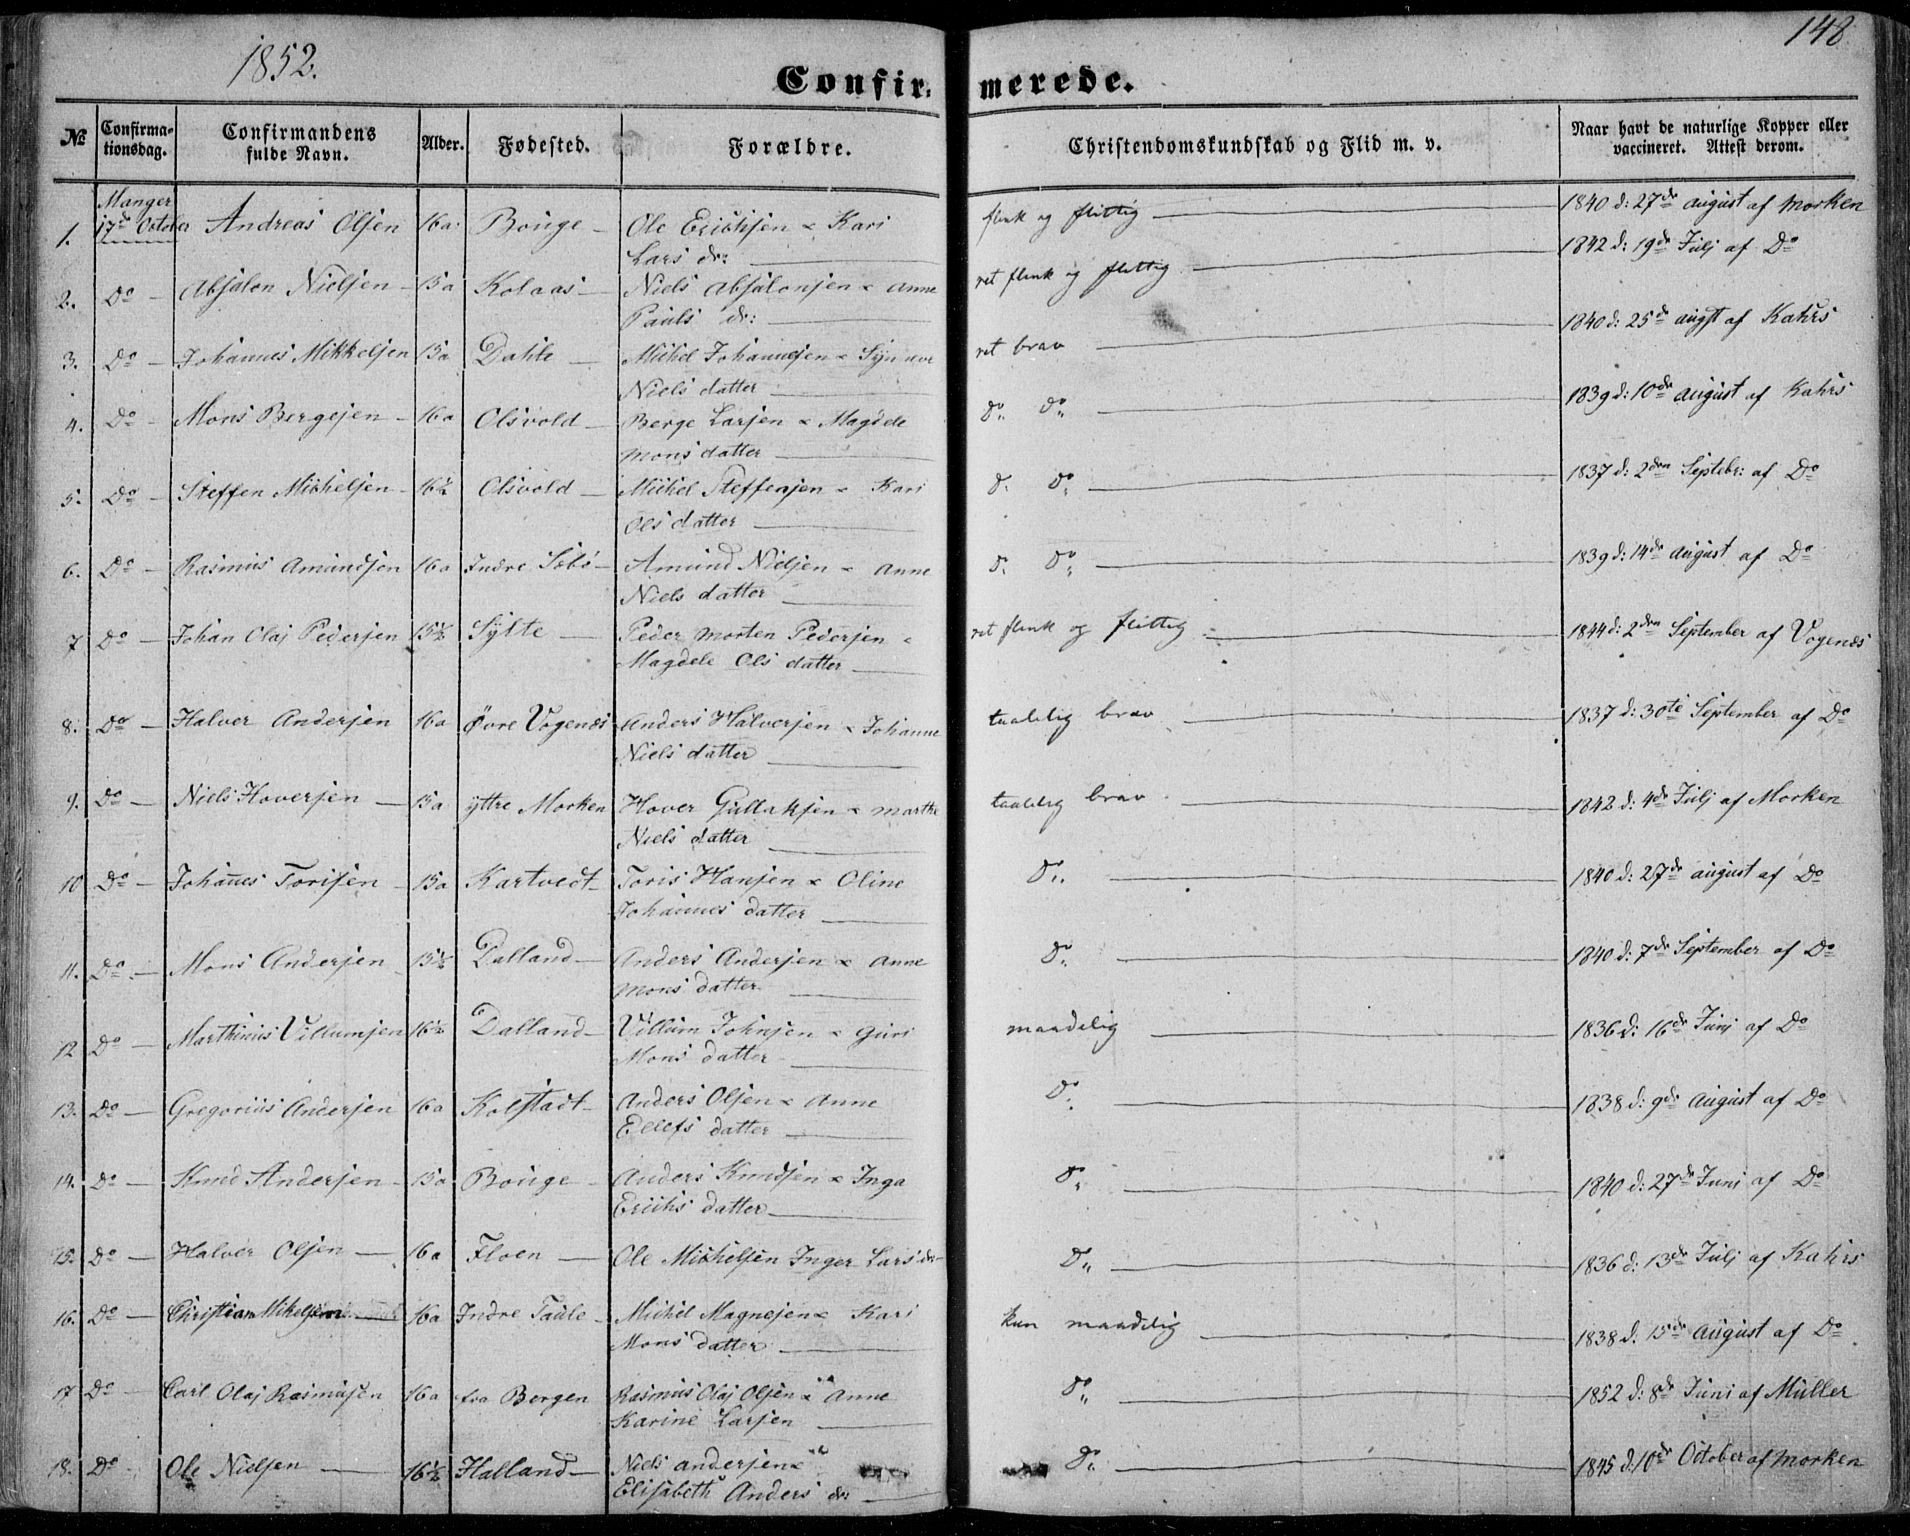 1852.
148
Confir= merede.
№ Confirma= tionsdag. Confirmandens fulde Navn. Alder. Fødested. Forældre. Christendomskundskab og Flid m. v. Naar havt de naturlige Kopper eller vaccineret. Attest derom.
Manger
1. 17de October Andreas Olsen 16a Bouge Ole Erichsen & Kari flink og flittig 1840 d: 27de august af Morken
Lars dr:
2. Do Absalon Nielsen 15a Kolaas Niels Absalonsen & Anne ret flink og flittig 1842 d: 19de Julj af Do
Pauls dr:
3. Do Johannes Mikkelsen 15a Dahle Michel Johannesen & Synnove ret brav 1840 d: 25de augst af Kahrs
Niels datter
4. Do Mons Bergesen 16a Olsvold Berge Larsen & Magdele Do Do 1839 d: 10de august af Kahrs
Mons datter
5. Do Steffen Michelsen 16½ Olsvold Michel Steffensen & Kari D. Do 1837 d: 2den Septebr: af Do
Ols datter
6. Do Rasmus Amundsen 16a Indre Sæbö Amund Nielsen & Anne D. Do 1839 d: 14de august af Do
Niels datter
7 Do Johan Olaj Pedersen 15½ Sylte Peder Morten Pedersen & ret flink og flittig 1844 d: 2den September af Vogenæs
Magdele Ols datter
8. Do Halver Andersen 16a Øvre Vogenæs Anders Halversen & Johanne taalelig brav 1837 d: 30te September af Do
Niels datter
9. Do Niels Hoversen 15a yttre Morken Hover Gullaksen & Marthe taalelig brav 1842 d: 4de Julj af Morken
Niels datter
10 Do Johañes Torisen 15a Kartvedt Toris Hansen & Oline Do 1840 d: 27de august af Do
Johannes datter
11. Do Mons Andersen 15½ Dalland Anders Andersen & Anne Do 1840 d: 7de September af Do
Mons datter
12 Do Marthinus Villumsen 16½ Dalland Villum Johnsen & Guri maadelig 1836 d: 16de Junj af Do
Mons datter
13. Do Gregorius Andersen 16a Kolstadt Anders Olsen & Anne Do 1838 d: 9de August af Do
Ellefs datter
14. Do Knud Andersen 15a Bouge Anders Knudsen & Inga Do 1840 d: 27de Juni af Do
Erichs datter
15. Do Halver Olsen 16a Floen Ole Michelsen Inger Lars dr Do 1836 d: 13de Julj af Kahrs
16. Do Christian Mikelsen 16a Indre Taule Michel Magnesen & Kari kun maadelig 1838 d. 15de August af Do
Mons datter
17 Do Carl Olaj Rasmusen 16a fra Bergen Rasmus Olaj Olsen & Anne Do 1852 d: 8de Juni af Müller
Karine Larsen
18. Do Ole Nielsen 16½ Halland Niels Andersen & Do 1845 d. 10de October af Morken
Elisabeth Anders dr: